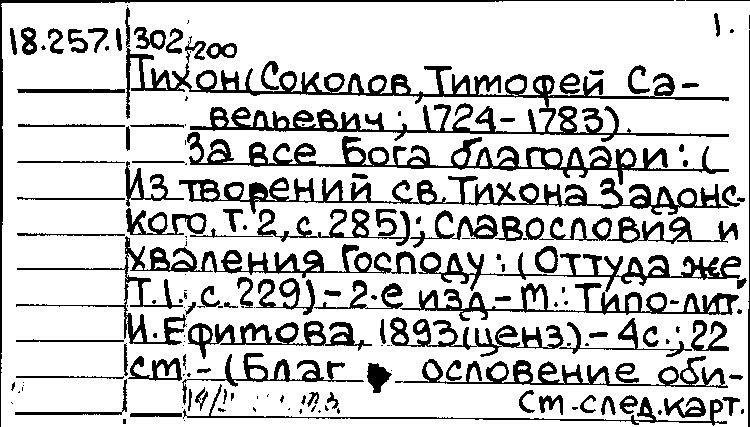 1.
18.257.1 302-200
Тихон(Соколов, Тимофей Са-
вельевич; 1724-1783).
За все Бога благодари: (
Из творений св. Тихона Задонс-
кого. Т. 2, с. 285); Славословия и
хваления Господу: (Оттуда же,
Т.1., с. 229).- 2-е изд.- М.: Типо-лит.
И. Ефимова, 1893(ценз.).- 4с.; 22
ст.- (Благ ословение оби-
См.след.карт.